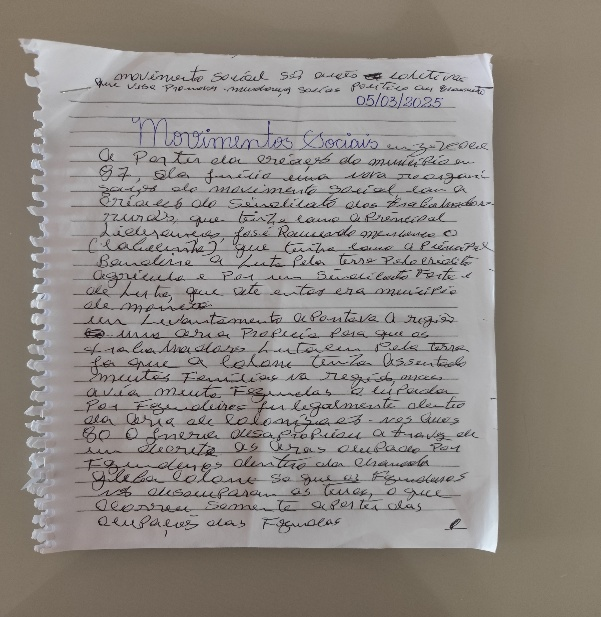 movimento social são ações coletivas
que visa promover mudanças sociais politico ou
05/03/2025
Movimentos Sociais em
A Partir da criação do municipio em
87, ela funcio uma nova reorgani
sação do movimento social, com a
Criação do Sindicato dos trabalhadores
rurais, que tinha como a Principal
Liderança José Raimundo
que tinha como a Principal
Bandeira a Luta Pela terra Pelo credito
Agricula e Por um Sindicato Forte e
de Luta, que ate entos era municipio
de
um Levantamento apontava a região
uma aria Propicia Para que os
trabalhadores Lutacem Pela terra
Ja que a colone tinha assentado
muitas Familias na região, mais
avia muita Fazendas ocupada
Por Fazendeiros ilegalmente dentro
da aria de colonização nos anos
80 O Incra desapropiou a traves de
um decreto as arias ocupado Por
Fazendeiros dentro da chamada
gleba colone so que os Fazendeiros
não desocuparam as terras, o que
ocorreu somente apartir das
ocupações das Fazendas